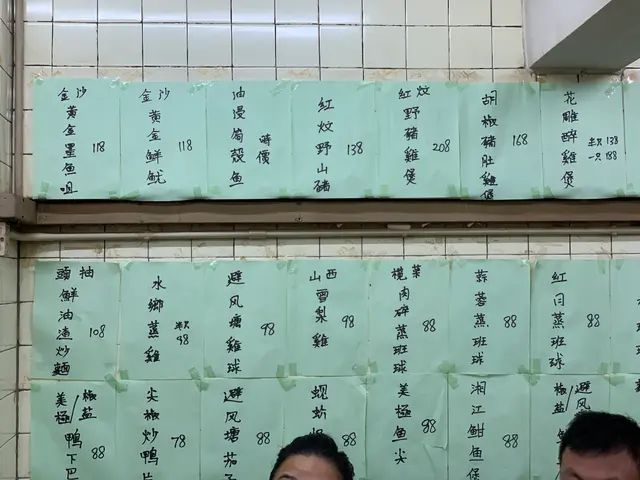 金沙黃金墨魚咀 118
金沙黃金鮮魷 118
油浸筍殼魚 時價
紅炆野山豬 138
紅炆野豬雞煲 208
胡椒豬肚雞煲 168
花雕醉雞煲 半只 138 一只 188
頭抽鮮油渣炒麵 108
水鄉蒸雞 半只 98
避风塘雞球 98
山西雪梨雞 98
欖菜肉碎蒸班球 88
蒜蓉蒸班球 88
紅日蒸班球 88
美極/椒盐鴨下巴 88
尖椒炒鴨片 78
避风塘茄子 88
蚬蚧 88
美極鱼尖 98
湘江鲋鱼煲 88
椒盐/避风